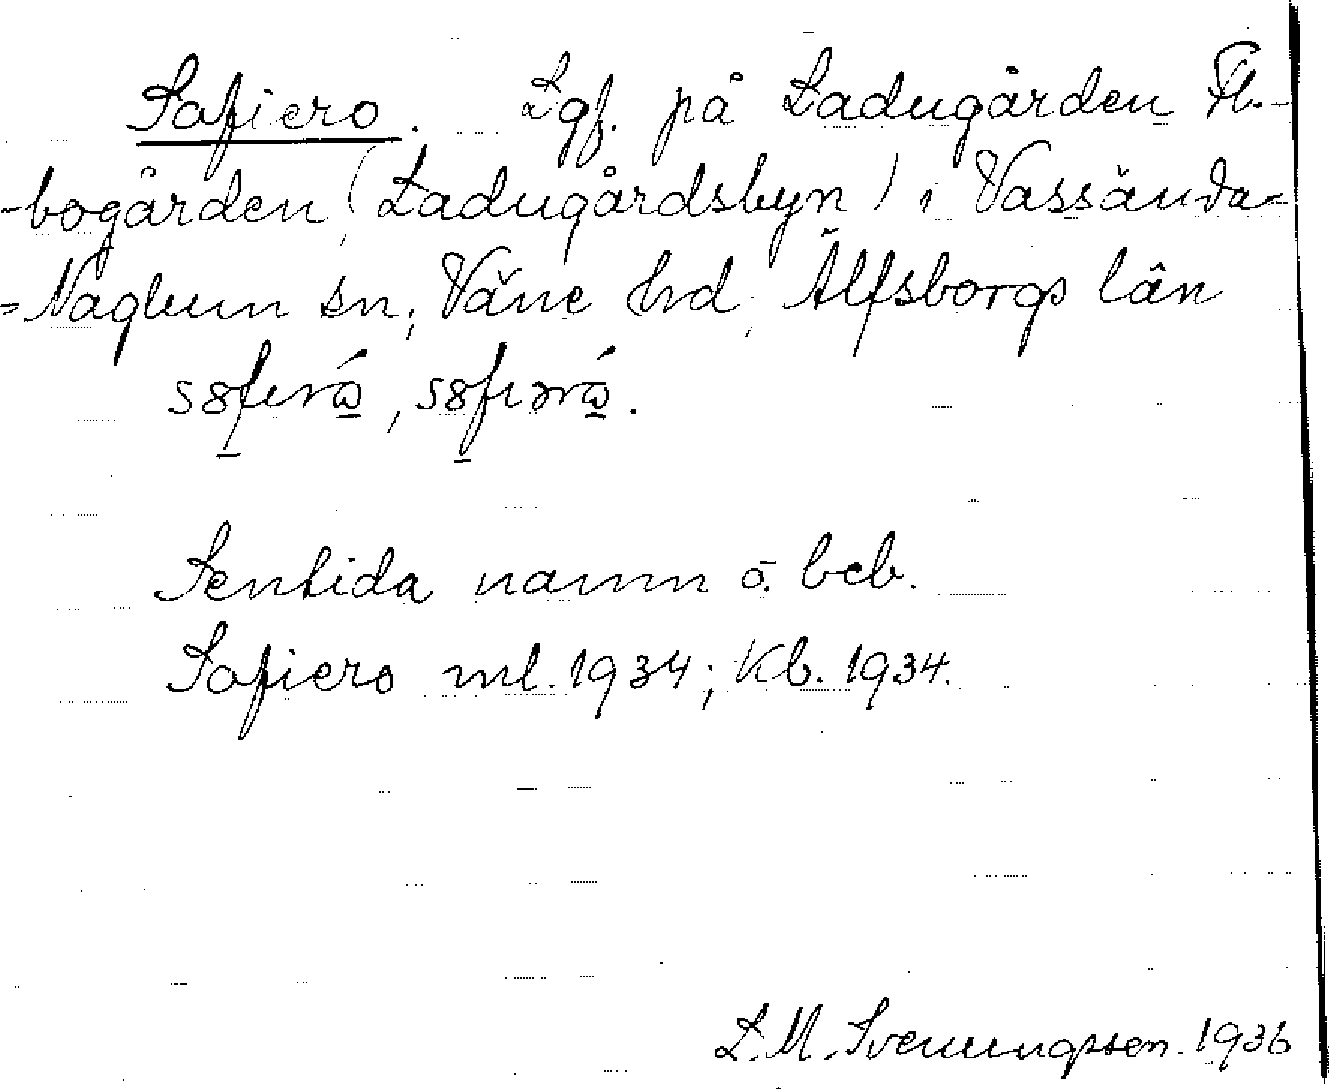 Sofiero. Lgf. på Ladugården Åb-
-bogården (Ladugårdsbyn) i Vassända-
-Naglum sn, Väne hrd, Älfsborgs län
Sentida namn o. beb.
Sofiero ml. 1934; Kb. 1934.
L.M. Svenungsson. 1936